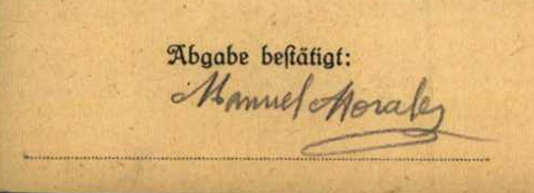 Abgabe bestätigt:
Manuel Morales